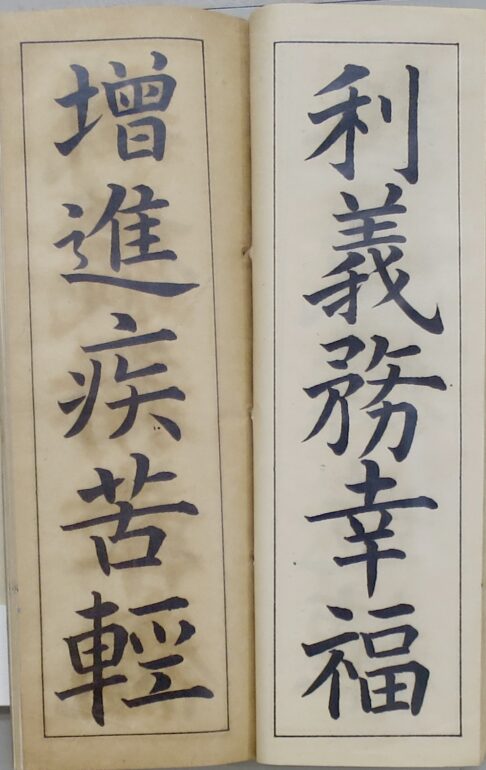 利義務幸福
增進疾苦輕